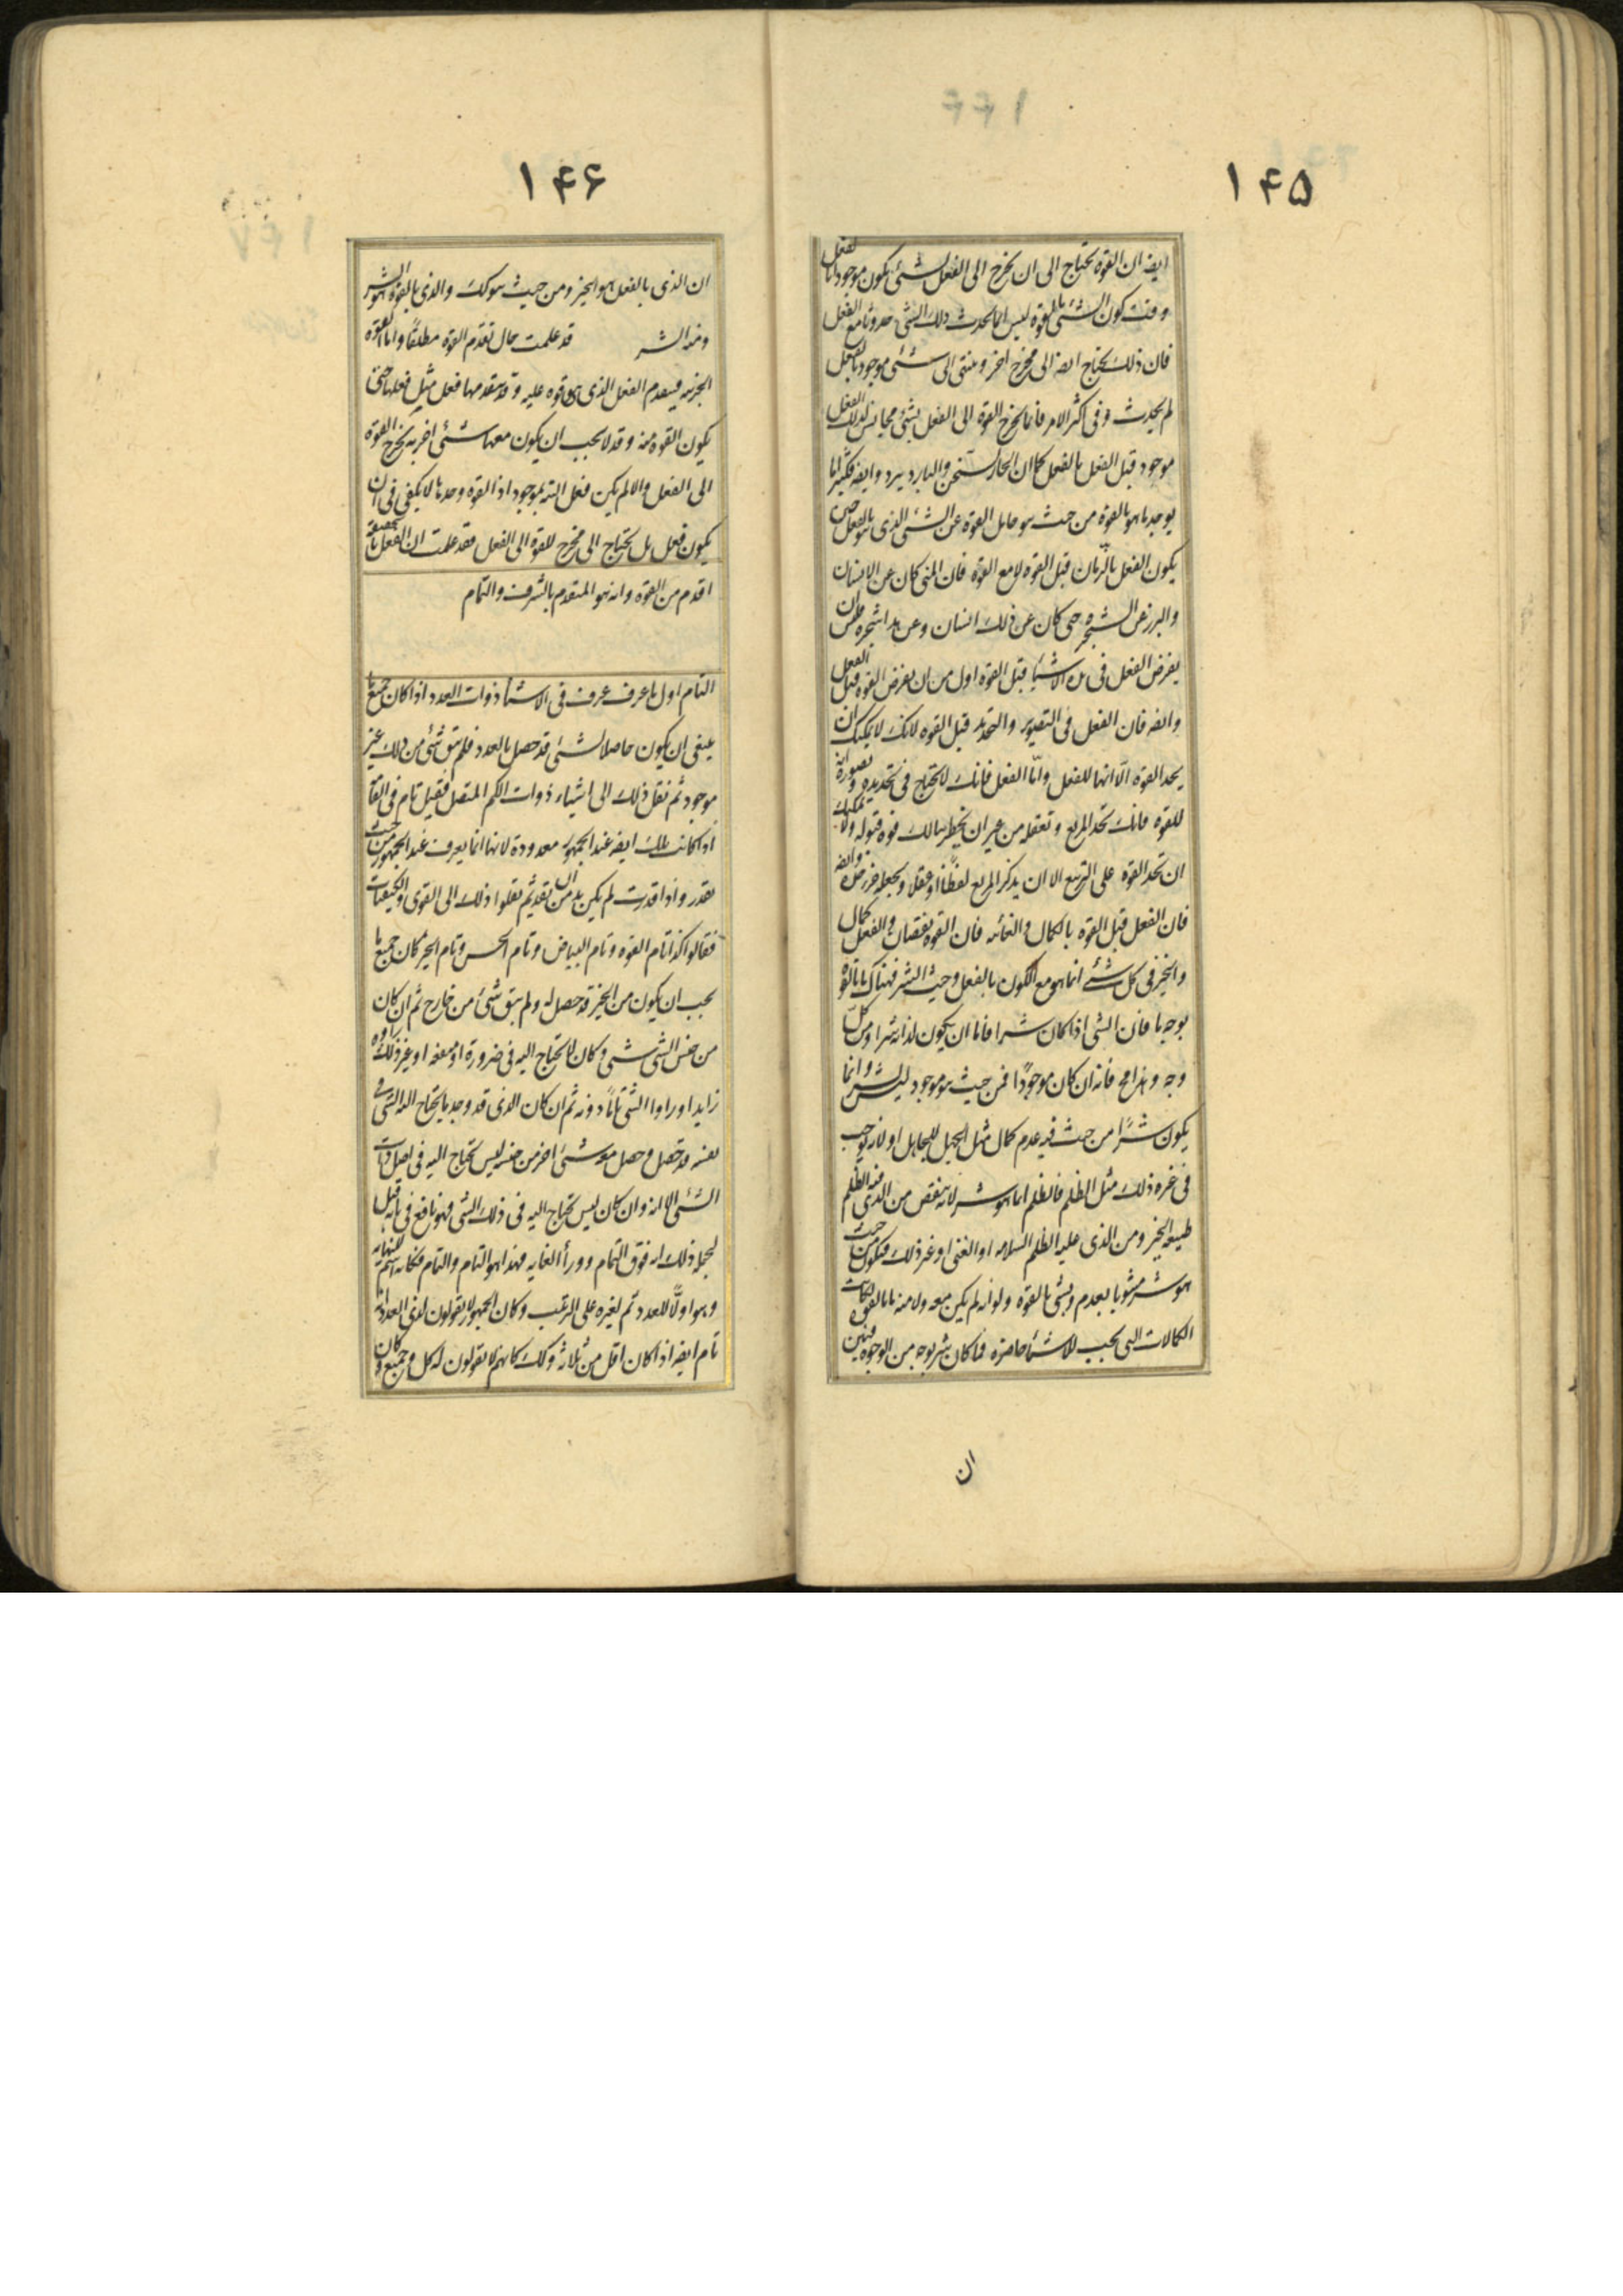 ۱۴۵
ايضه ان القوة تحتاج الى ان تخرج الى الفعل لشئ يكون موجودا بالفعل
وقت كون الشئ بالقوة ليس انما يحدث ذلك الشئ حدوثا مع الفعل
فان ذلك يحتاج ايضه الى مخرج اخر وينتهى الى شئ موجود بالفعل
لم يحدث وفى اكثر الامر فانما يخرج القوة الى الفعل شئ مجانس لذلك الفعل
موجود قبل الفعل بالفعل كما ان الحار يسخن والبارد يبرد وايضه فكثيرا ما
يوجد ما هو بالقوة من حيث هو حامل القوة عن الشئ الذى هو بالفعل حتى
يكون الفعل بالزمان قبل القوة لا مع القوة فان المنى كان عن الانسان
والبزر عن الشجرة حتى كان عن ذلك انسان وعن هذا شجرة فليس ان
يفرض الفعل فى هذه الاشياء قبل القوة اولى من ان يفرض القوة قبل الفعل
وايضه فان الفعل فى التصوير والتحديد قبل القوة لانك لا يمكنك ان
يحد القوة الا انها للفعل واما الفعل فانك لا تحتاج فى تحديده وتصوره انه
للقوة فانك تحد المربع وتعقله من غير ان يخطر ببالك قوة قبوله ولا يمكنك
ان تحد القوة على التربيع الا ان يذكر المربع لفظا او عقلا وتجعله جزء حده وايضه
فان الفعل قبل القوة بالكمال والغائه فان القوة نقصان والفعل كمال
والخير فى كل شئ انما هو مع الكون بالفعل وحيث الشر فهناك ما بالقوة
بوجه ما فان الشئ اذا كان شرا فاما ان يكون لذاته شرا ومن كل
وجه وهذا مح فانه ان كان موجودا فمن حيث هو موجود ليس بشر وانما
يكون شرا من حيث فيه عدم كمال مثل الجهل للجاهل او لانه يوجب
فى غيره ذلك مثل الظلم فالظلم انما هو شر لانه ينقص من الذى فيه الظلم
طبيعه الخير ومن الذى عليه الظلم السلامه او الغنى او غير ذلك فيكون من حيث
هو شر مشوبا بعدم وبشئ بالقوة ولو انه لم يكن معه ولا منه ما بالقوة لكانت
الكمالات التى تجب للاشيا حاضرة فما كان شر بوجه من الوجوه فبين
ان
۱۴۶
ان الذى بالفعل هو الخير ومن حيث هو كك والذى بالقوة هو الشر
ومنه الشر قد علمت حال تقدم القوة مطلقا واما القوة
الجزئيه فيتقدم الفعل الذى هى قوه عليه وقد يتقدمها فعل مثل فعلها حتى
يكون القوه منه وقد لا يجب ان يكون معها شئ اخر به يخرج القوة
الى الفعل والا لم يكن فعل البته بموجود اذا القوة وحدها لا يكفى فى ان
يكون فعل بل تحتاج الى مخرج للقوة الى الفعل فقد علمت ان الفعل بالحقيقة
اقدم من القوة وانه هو المتقدم بالشرف والتمام
التام اول ما عرف عرف فى الاشيا ذوات العدد اذا كان جميع ما
ينبغى ان يكون حاصلا لشئ قد حصل بالعدد فلم يبق شئ من ذلك غير
موجود ثم نقل ذلك الى اشياء ذوات الكم المتصل فقيل تام فى القامة
اذا كانت تلك ايضه عند الجمهور معدودة لانها انما يعرف عند الجمهور من حيث
تقدر واذا قدرت لم يكن بد من ان تعد ثم نقلوا ذلك الى القوى والكيفيات
فقالوا كذا تام القوة وتام البياض وتام الحسن وتام الخير كان جميع ما
يجب ان يكون من الخير قد حصل له ولم يبق شئ من خارج ثم ان كان
من جنس الشئ شئ وكان لا تحتاج اليه فى ضرورة او منفعه او غير ذلك راوه
زايدا وراوا الشئ تاما دونه ثم ان كان الذى قد وجد ما يحتاج اليه الشئ فى
نفسه قد حصل وحصل معه شئ اخر من جنسه ليس يحتاج اليه فى اصل ذات
الشئ الا انه وان كان ليس تحتاج اليه فى ذلك الشئ فهو نافع فى بابه قيل
لجملة ذلك انه فوق التمام ووراء الغايه فهذا هو التام والتمام فكانه اسم للنهايه
وهو اولا للعدد ثم لغيره على الترتيب وكان الجمهور لا يقولون لذى العدد انه
تام ايضه اذا كان اقل من ثلاثه وكك كانهم لا يقولون له كل وجميع وكان